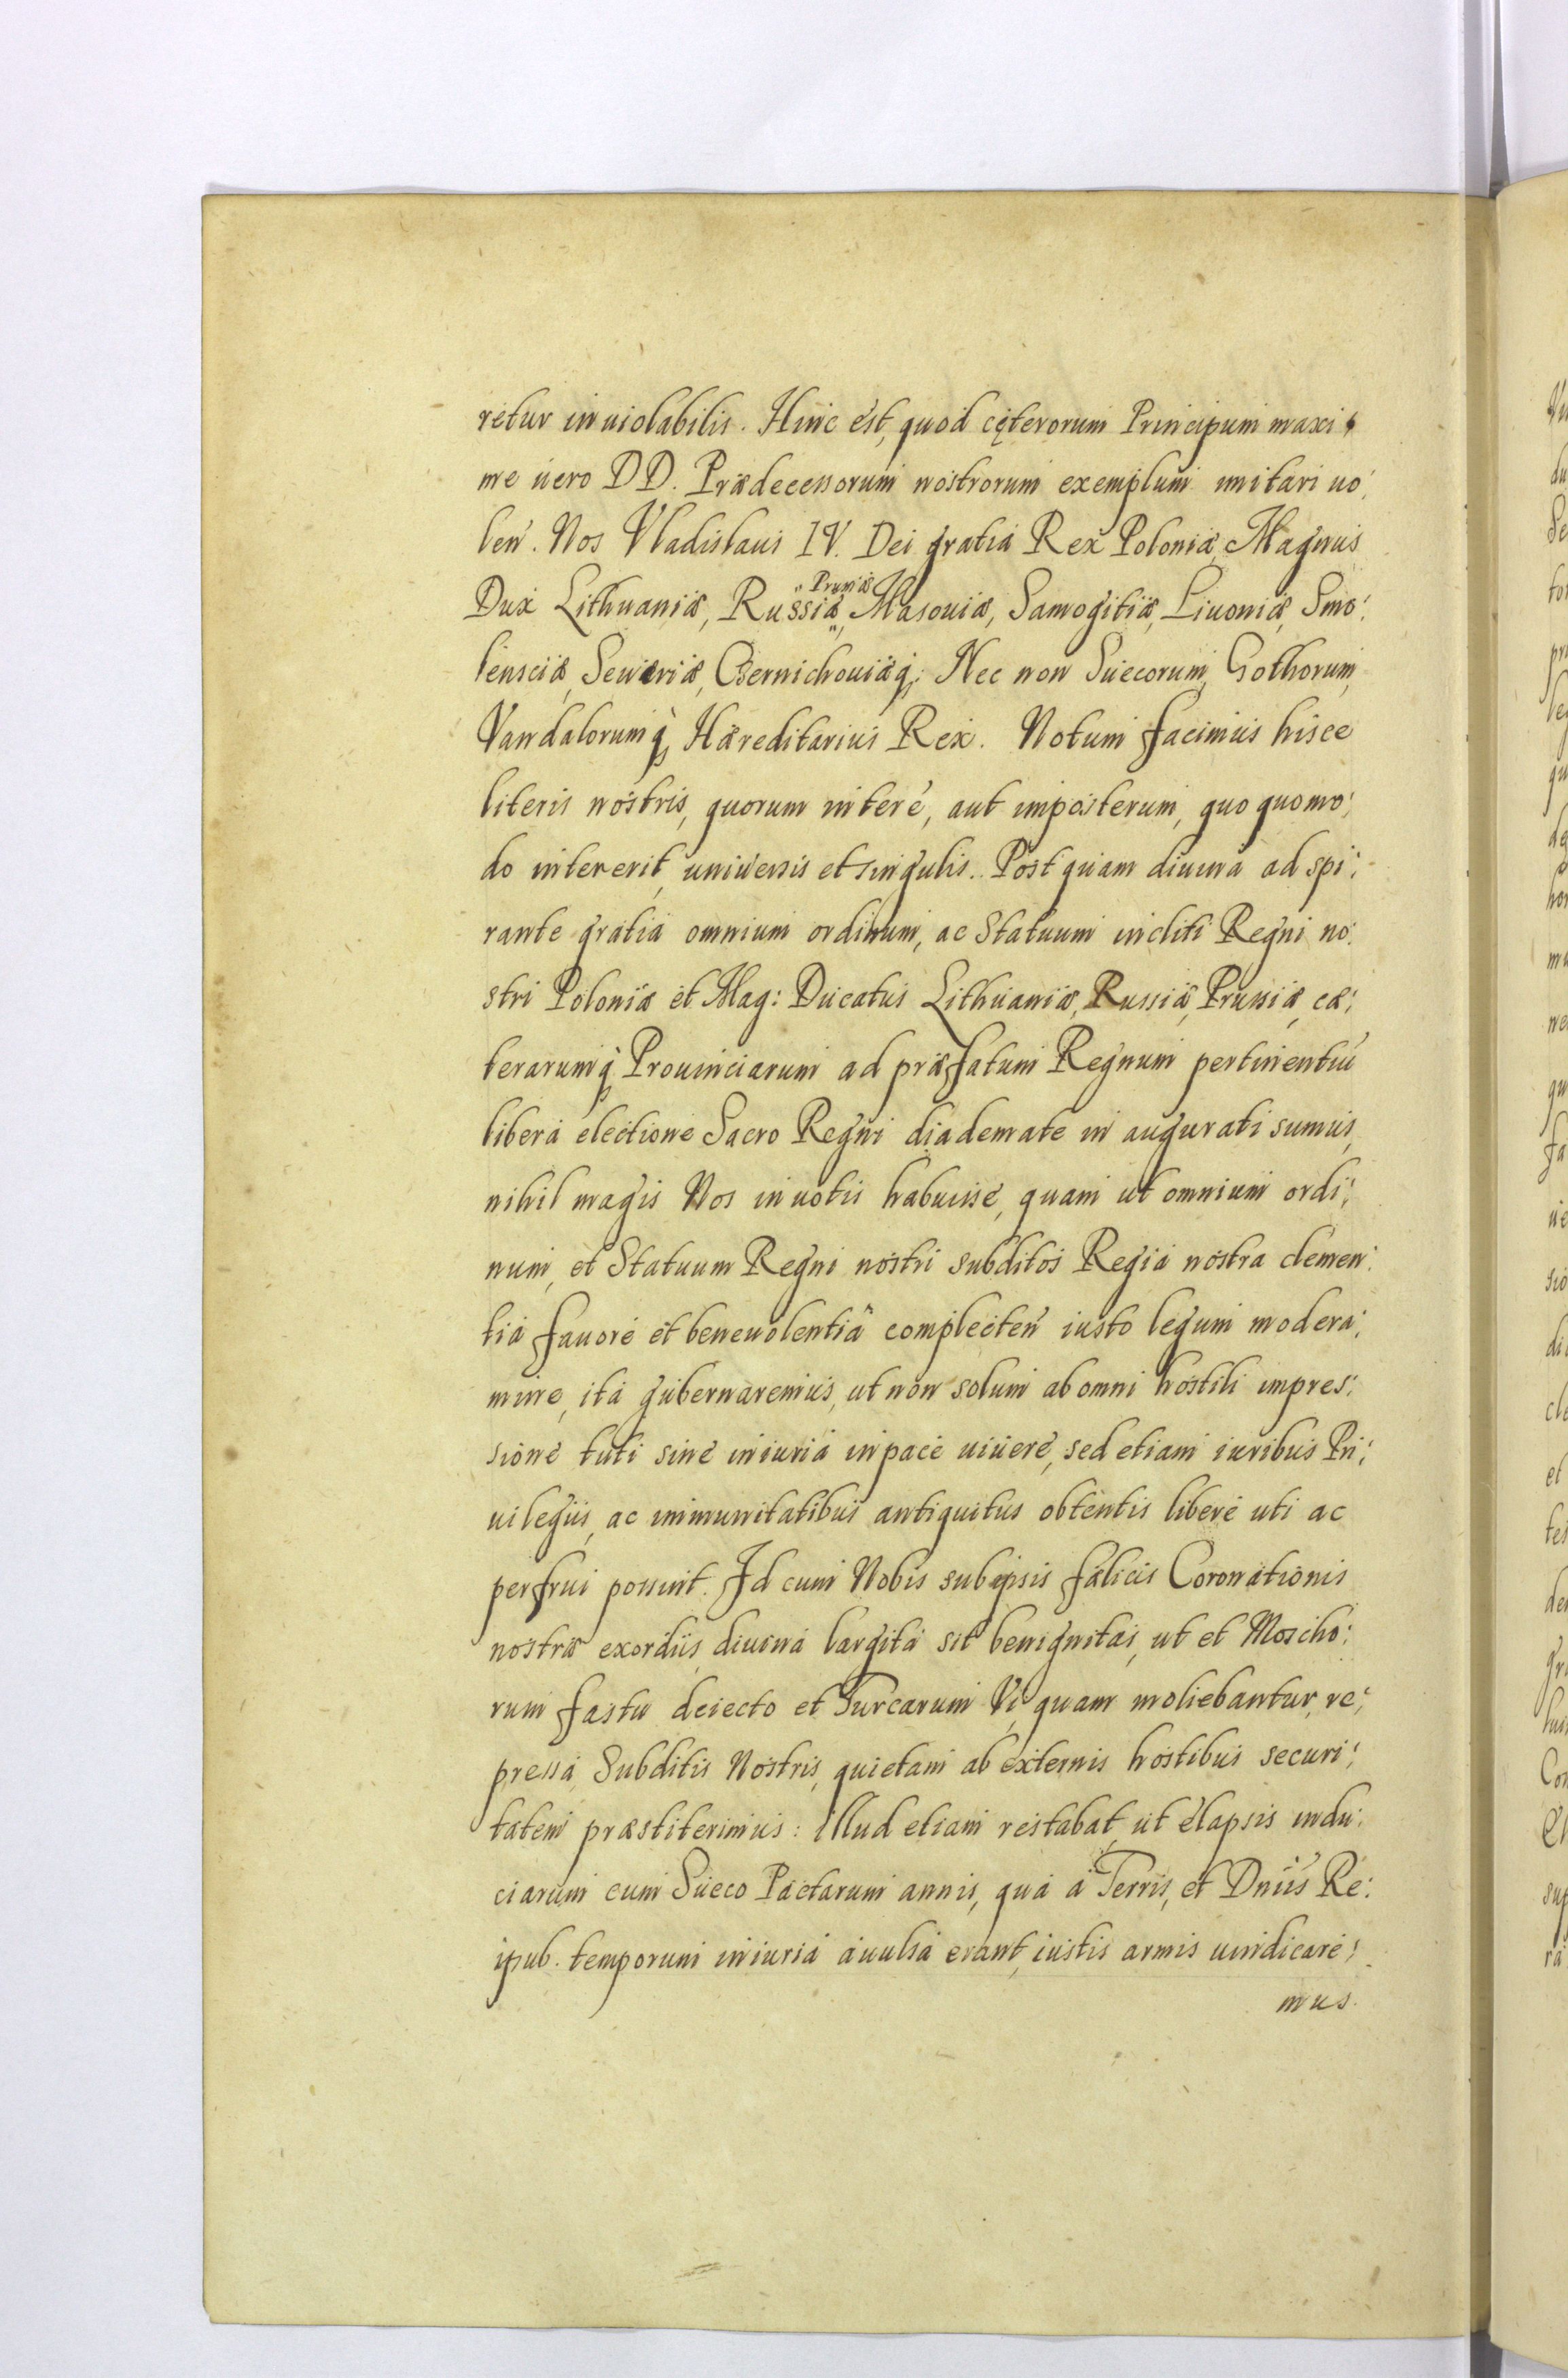 retur inuiolabilis. Hinc est, quod cęterorum Principum maxi:
me uero DD. Prædecessorum nostrorum exemplum imitari uo:
len. Nos Vladislaus IV. Dei gratia Rex Poloniæ, Magnus
Prussiæ
Dux Lithuaniæ, Russiæ, Masouiæ, Samogitiæ, Liuoniæ, Smo:
lensciæ, Seueriæ, Czernichouiæq; Nec non Suecorum, Gothorum,
Vandalorumq; Hæreditarius Rex. Notum facimus hisce
literis nostris, quorum interē, aut imposterum, quo quomo:
do intererit, uniuersis et singulis. Post quam diuina ad spi:
rante gratia omnium ordinum, ac Statuum incliti Regni no:
stri Poloniæ et Mag: Ducatus Lithuaniæ, Russiæ, Prussiæ, cæ:
terarumq; Prouinciarum ad præfatum Regnum pertinentiū
libera electione Sacro Regni diademate in augurati sumus,
nihil magis Nos in uotis habuisse, quam ut omnium ordi:
num, et Statuum Regni nostri subditos Regia nostra clemen:
tia fauore et beneuolentiâ complecten iusto legum modera:
mine, ita gubernaremus, ut non solum ab omni hostili impres:
sione tuti sine iniuria in pace uiuere, sed etiam iuribus Pri:
uilegiis, ac immunitatibus antiquitus obtentis libere uti ac
perfrui possint. Id cum Nobis sub ipsis fælicis Coronationis
nostræ exordiis, diuina largita sit benignitas, ut et Moscho:
rum fastu deiecto et Turcarum Vi quam moliebantur, re:
pressa, Subditis Nostris, quietam ab externis hostibus securi:
tatem præstiterimus: illud etiam restabat, ut elapsis indu:
ciarum cum Sueco Pactarum annis, quæ a Terris, et Dniis Re:
ipub. temporum iniuria auulsa erant, iustis armis uindicare:
mus.